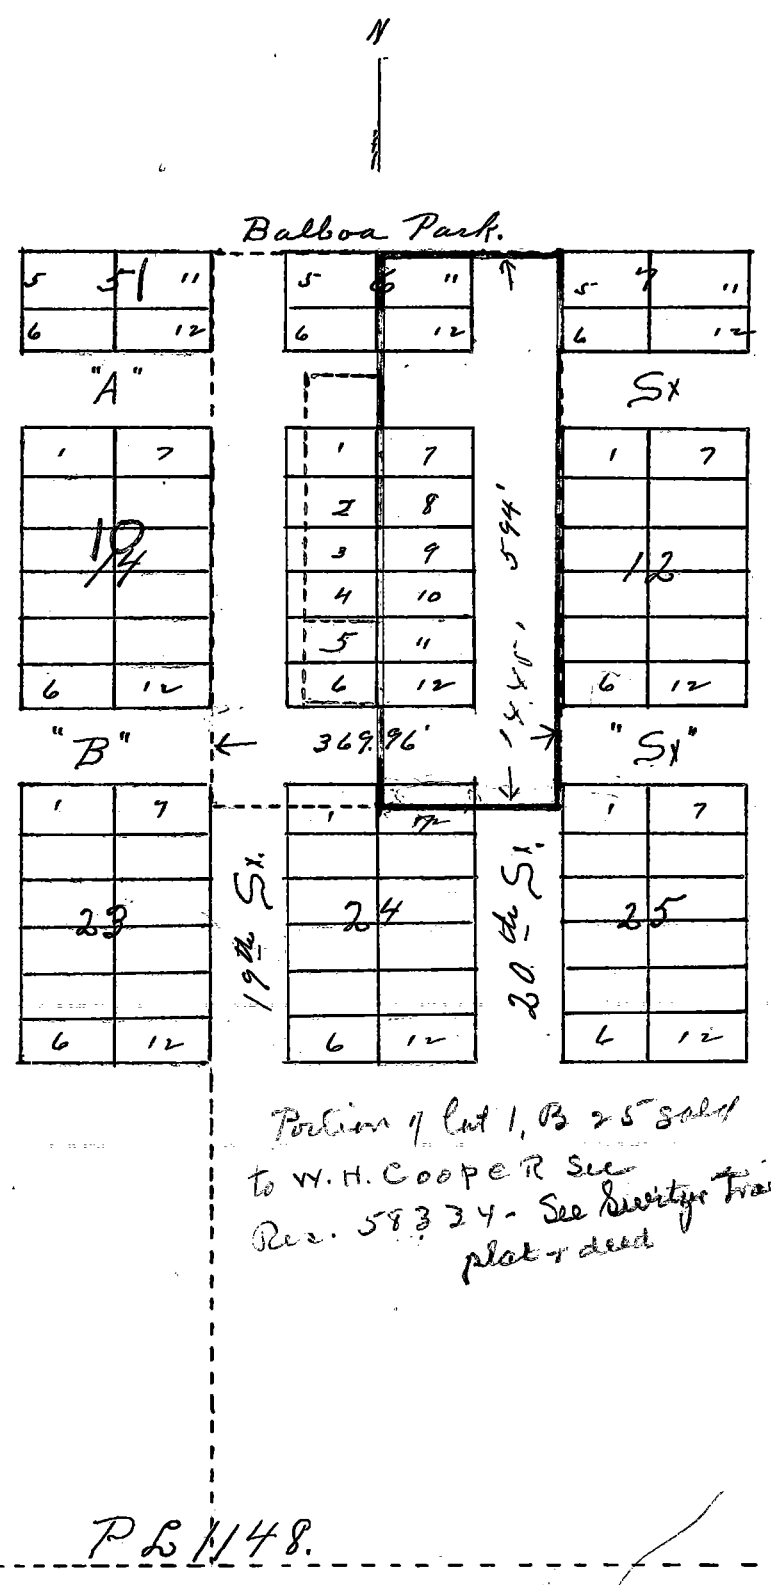 N
Balboa Park.
5 51 11
6 12
5 6 11
6 12
5 7 11
6 12
"A" St
1 7
14
6 12
1 7
2 8
3 9
4 10
5 11
6 12
1 7
12
6 12
594'
"B" 369.96' "St"
1 7
23
6 12
19th St.
1 7
24
6 12
20th St.
1 7
25
6 12
Portion of Lot 1, B 25 sold
to W.H. Cooper See
Res. 58324 - See
plat & deed
P L 1148.